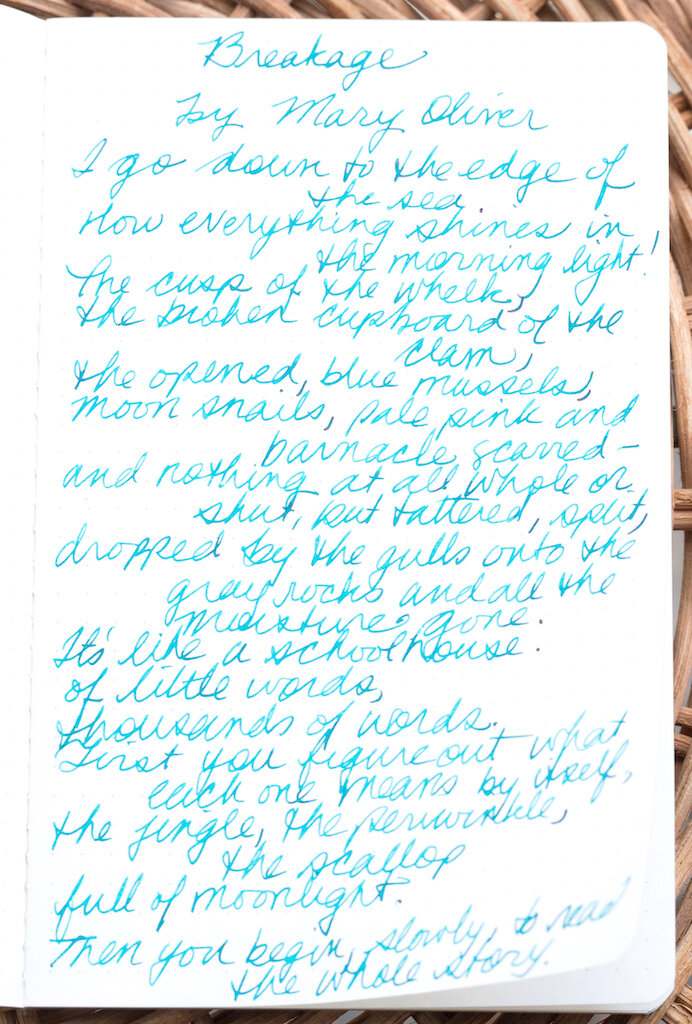 Breakage
by Mary Oliver
I go down to the edge of
the sea
How everything shines in
the morning light!
The cusp of the whelk,
the broken cupboard of the
clam,
the opened, blue mussels,
moon snails, pale pink and
barnacle scarred—
and nothing at all whole or
shut, but tattered, split,
dropped by the gulls onto the
gray rocks and all the
moisture gone.
It's like a schoolhouse
of little words,
thousands of words.
First you figure out what
each one means by itself,
the jingle, the periwinkle,
the scallop
full of moonlight.
Then you begin, slowly, to read
the whole story.